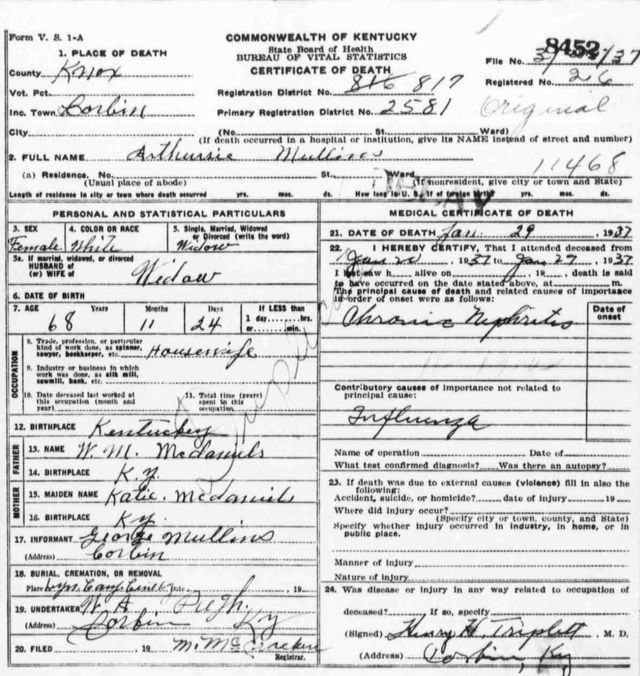 Form V. S. 1-A
COMMONWEALTH OF KENTUCKY
State Board of Health
BUREAU OF VITAL STATISTICS
CERTIFICATE OF DEATH
File No. 8452 37
Registered No. 26
Original
1. PLACE OF DEATH
County Knox
Vot. Pct.
Inc. Town Corbin
City
Registration District No. 816 817
Primary Registration District No. 2581
(No. St. Ward)
(If death occurred in a hospital or institution, give its NAME instead of street and number)
2. FULL NAME Mullins
11468
(a) Residence. No. St. Ward
(Usual place of abode) (If nonresident, give city or town and State)
Length of residence in city or town where death occurred yrs. mos. ds. How long in U. S. if of foreign birth? yrs. mos. ds.
PERSONAL AND STATISTICAL PARTICULARS
3. SEX
Female
4. COLOR OR RACE
White
5. Single, Married, Widowed
or Divorced (write the word)
Widow
5a. If married, widowed, or divorced
HUSBAND of
(or) WIFE of Widow
6. DATE OF BIRTH
7. AGE Years Months Days If LESS than
68 11 24 1 day hrs.
or min.
OCCUPATION
8. Trade, profession, or particular
kind of work done, as spinner,
sawyer, bookkeeper, etc. Housewife
9. Industry or business in which
work was done, as silk mill,
sawmill, bank, etc.
10. Date deceased last worked at
this occupation (month and
year)
11. Total time (years)
spent in this
occupation.
12. BIRTHPLACE Kentucky
FATHER
13. NAME W. M. McDaniels
14. BIRTHPLACE Ky.
MOTHER
15. MAIDEN NAME Katie McDaniels
16. BIRTHPLACE Ky
17. INFORMANT George Mullins
(Address) Corbin
18. BURIAL, CREMATION, OR REMOVAL
Place Date 19
19. UNDERTAKER W. A. Pugh
(Address) Corbin Ky
20. FILED 19 M. McCracken
Registrar.
MEDICAL CERTIFICATE OF DEATH
21. DATE OF DEATH Jan. 29 1937
22. I HEREBY CERTIFY, That I attended deceased from
Jan 20 1937 to Jan 29, 1937
I last saw h alive on 19 , death is said
to have occurred on the date stated above, at m.
The principal cause of death and related causes of importance
in order of onset were as follows:
Date of
onset
Chronic Nephritis
Contributory causes of importance not related to
principal cause:
Influenza
Name of operation Date of
What test confirmed diagnosis? Was there an autopsy?
23. If death was due to external causes (violence) fill in also the
following:
Accident, suicide, or homicide? date of injury 19
Where did injury occur?
(Specify city or town, county, and State)
Specify whether injury occurred in industry, in home, or in
public place.
Manner of injury
Nature of injury
24. Was disease or injury in any way related to occupation of
deceased? If so, specify
(Signed) Henry H. Triplett M. D.
(Address) Corbin, Ky